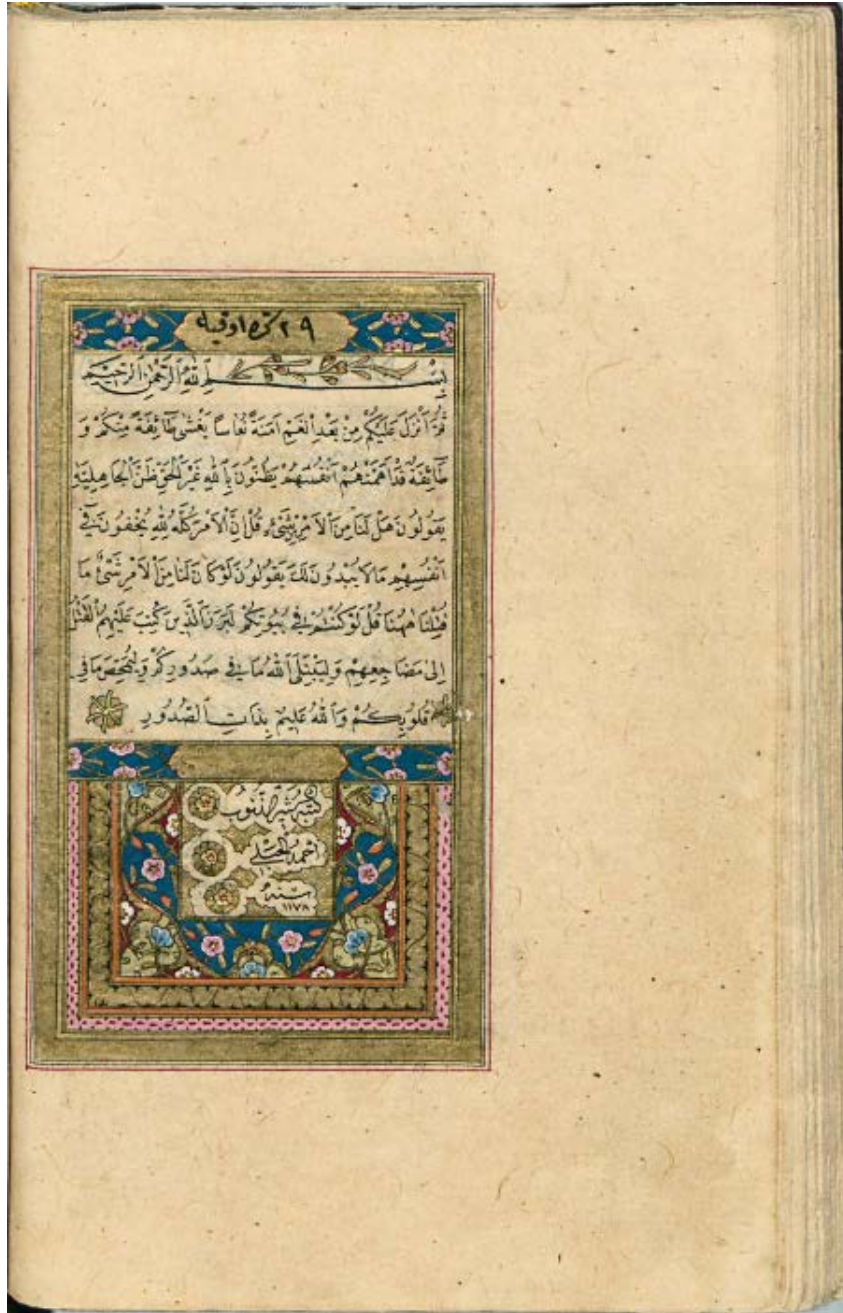 ٢٩ كره اوقيه
بِسْمِ اللَّهِ الرَّحْمَٰنِ الرَّحِيمِ
ثُمَّ أَنْزَلَ عَلَيْكُمْ مِنْ بَعْدِ الْغَمِّ أَمَنَةً نُعَاسًا يَغْشَىٰ طَائِفَةً مِنْكُمْ وَ
طَائِفَةٌ قَدْ أَهَمَّتْهُمْ أَنْفُسُهُمْ يَظُنُّونَ بِاللَّهِ غَيْرَ الْحَقِّ ظَنَّ الْجَاهِلِيَّةِ
يَقُولُونَ هَلْ لَنَا مِنَ الْأَمْرِ مِنْ شَيْءٍ قُلْ إِنَّ الْأَمْرَ كُلَّهُ لِلَّهِ يُخْفُونَ فِي
أَنْفُسِهِمْ مَا لَا يُبْدُونَ لَكَ يَقُولُونَ لَوْ كَانَ لَنَا مِنَ الْأَمْرِ شَيْءٌ مَا
قُتِلْنَا هَٰهُنَا قُلْ لَوْ كُنْتُمْ فِي بُيُوتِكُمْ لَبَرَزَ الَّذِينَ كُتِبَ عَلَيْهِمُ الْقَتْلُ
إِلَىٰ مَضَاجِعِهِمْ وَلِيَبْتَلِيَ اللَّهُ مَا فِي صُدُورِكُمْ وَلِيُمَحِّصَ مَا فِي
قُلُوبِكُمْ وَاللَّهُ عَلِيمٌ بِذَاتِ الصُّدُورِ
الذنوب
احمد
سنه
١١٧٨